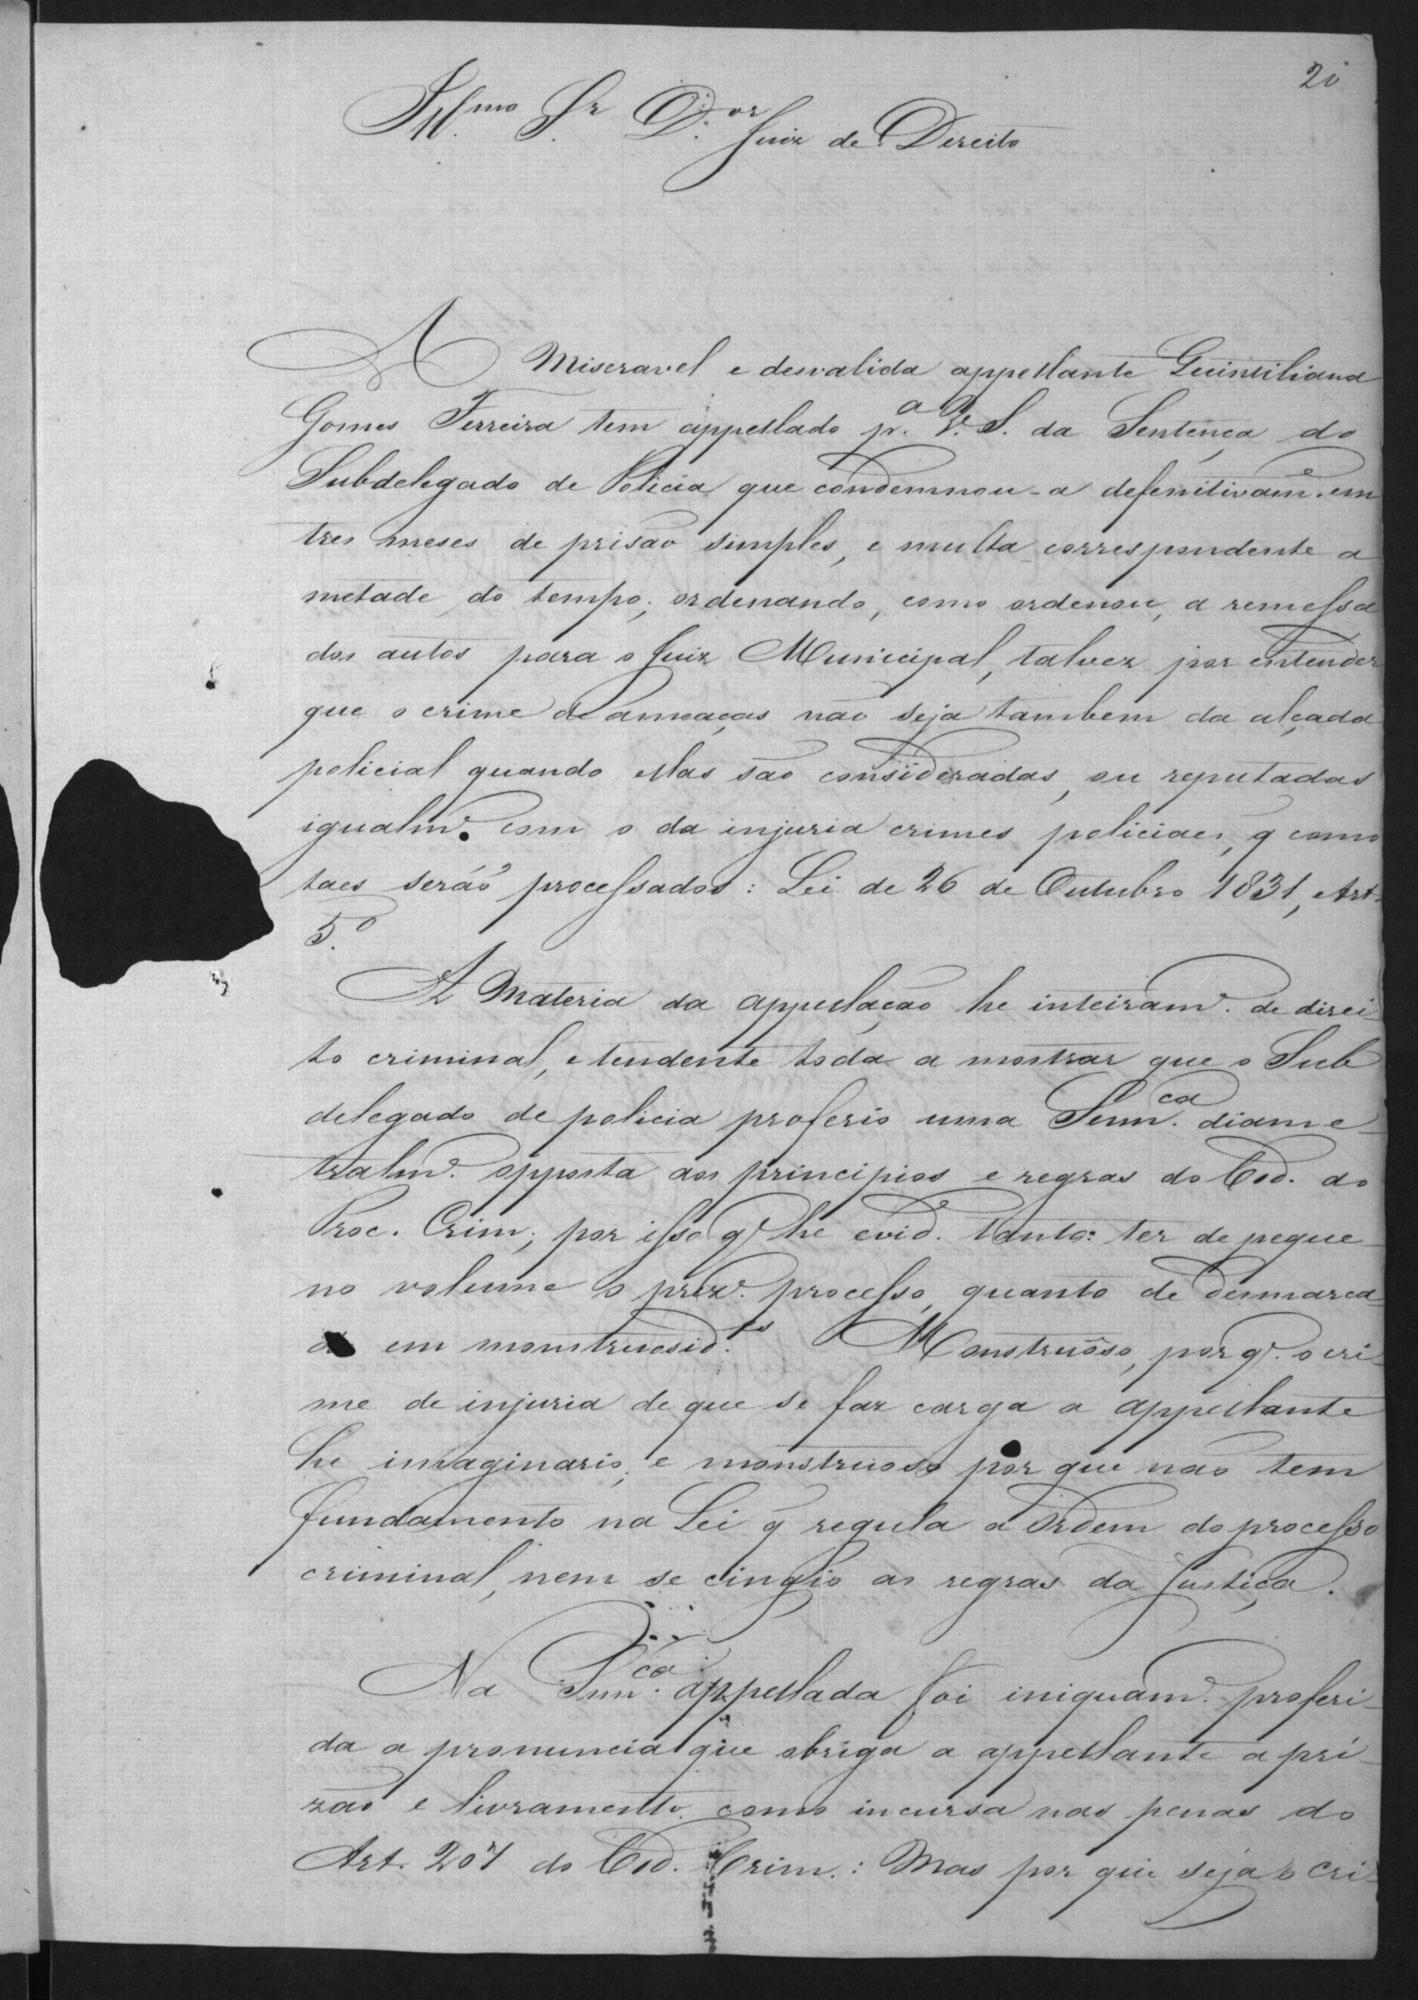 20
Ill.mo Sr. D.or Juiz de Direito
A Miseravel e desvalida appellante Quintiliana
Gomes Ferreira tem appellado p.a V. S. da Sentença do
Subdelegado de Policia que condemnou-a defenitivam.e em
tres meses de prisão simples, e multa correspondente a
metade do tempo; ordenando, como ordenou, a remessa
dos autos para o Juiz Municipal, talvez por entender
que o crime de ameaças não seja tambem da alçada
policial quando ellas são consideradas, ou reputadas
igualm.e com o da injuria crimes policiaes, q como
taes serão processados: Lei de 26 de Outubro 1831, Art.
5.o
A Materia da appellação he inteiram.e de direi-
to criminal, e tendente toda a mostrar que o Sub
delegado de policia proferio uma Senn.ca diame-
tralm.e opposta aos principios e regras do Cod. do
Proc. Crim; por isso q' he evid.e tanto: ter de peque-
no volume o prez.e processo, quanto de desmarca-
do em monstruosid.es Monstruôso, porq'. o cri-
me de injuria de que se faz carga a appellante
he imaginario; e monstruoso por que não tem
fundamento na Lei q regula a Ordem do processo
criminal, nem se cingio as regras da Justiça.
Na Senn.ca appellada foi iniquam.e proferi-
da a pronuncia que obriga a appellante a pri-
zão e livramento como incursa nas penas do
Art. 207 do Cod. Crim.: Mas por que seja o cri-